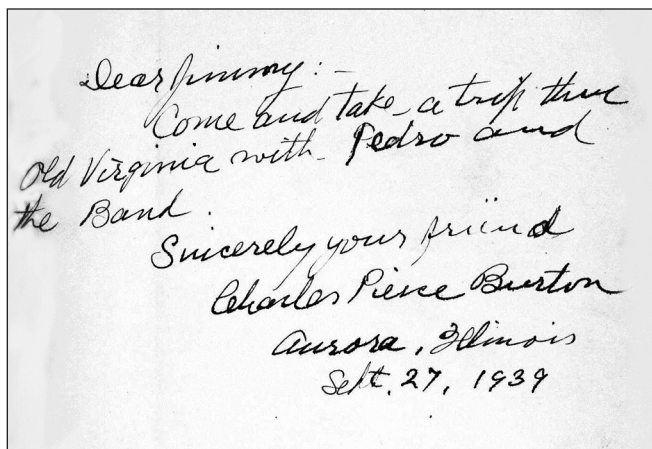 Dear Jimmy: -
Come and take a trip thru
Old Virginia with Pedro and
the Band.
Sincerely your friend
Charles Pierce Burton
Aurora, Illinois
Sept. 27, 1939